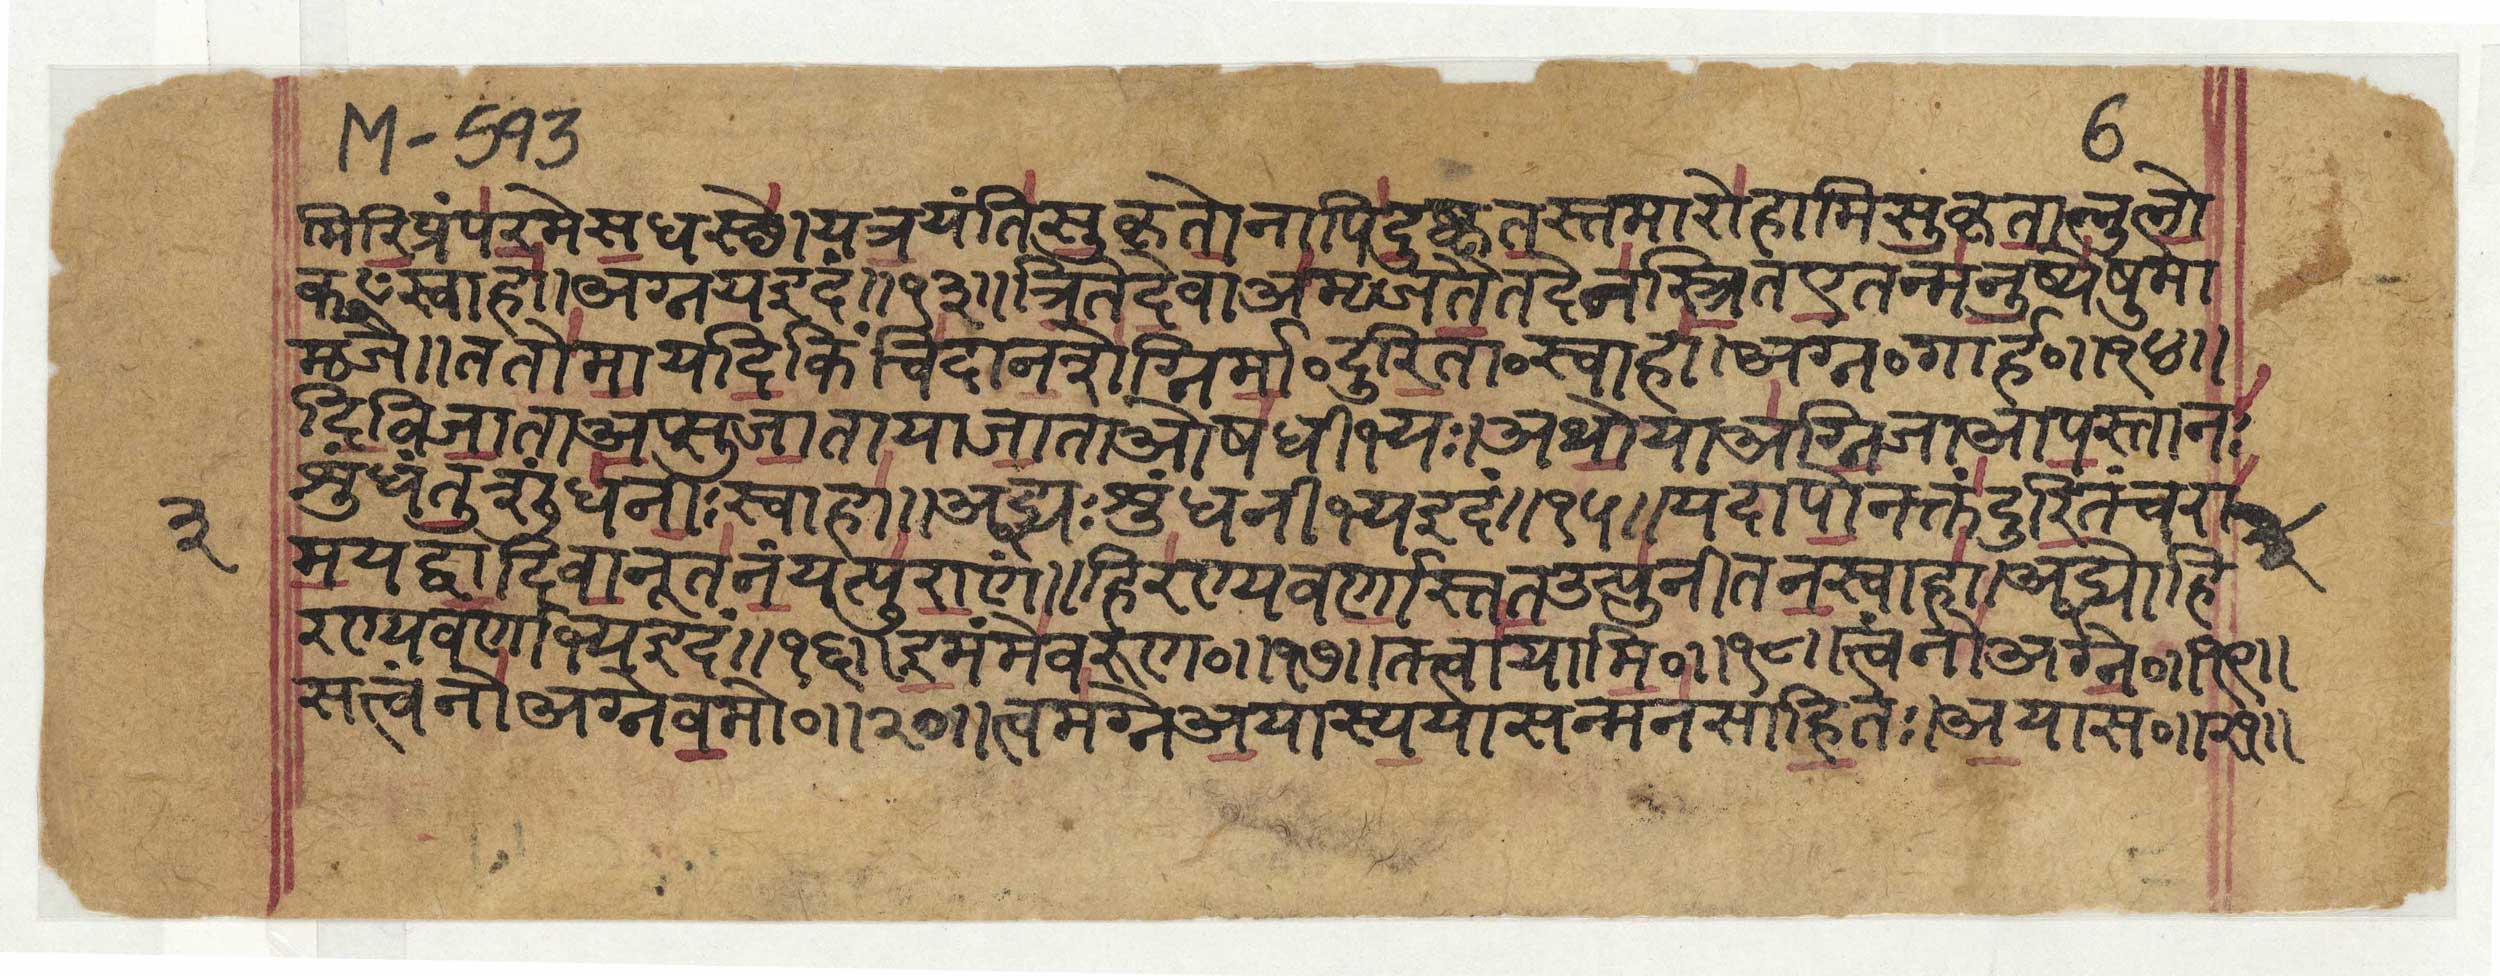 M-593
6
मिरिप्रंपरमेसधस्छे।यत्रयंतिसुकृतोनापिदुष्कृतस्तमारोहामिसुकृतालुलो
कꣳस्वाहा॥अग्नयइदं॥१३॥त्रितेदेवाअमृजतैतदेनस्त्रितएतन्मनुष्येषुमा
मृजे॥ततोमायदिकिंचिदानशेग्निर्मा॰दुरिता॰स्वाहा।अग्न॰गार्ह॰॥१४॥
दिविजाताअप्सुजातायाजाताओषधीभ्यः।अथोयाअग्निजाआपस्तानः
शुंधंतुशुंधनीःस्वाहा॥अद्भ्यःशुंधनीभ्यइदं॥१५॥यदापोनक्तंदुरितंचरा
३
मयद्वादिवानूतनंयत्पुराणं॥हिरण्यवर्णास्ततउत्पुनीतनस्वाहा।अद्भ्योहि
रण्यवर्णाभ्यइदं॥१६॥इमंमेवरुण॰॥१७॥तत्त्वायामि॰॥१८॥त्वंनोअग्ने॰॥१९॥
सत्वंनोअग्नेवमो॰॥२०॥त्वमग्नेअयास्ययासन्मनसाहितः।अयास॰॥२१॥